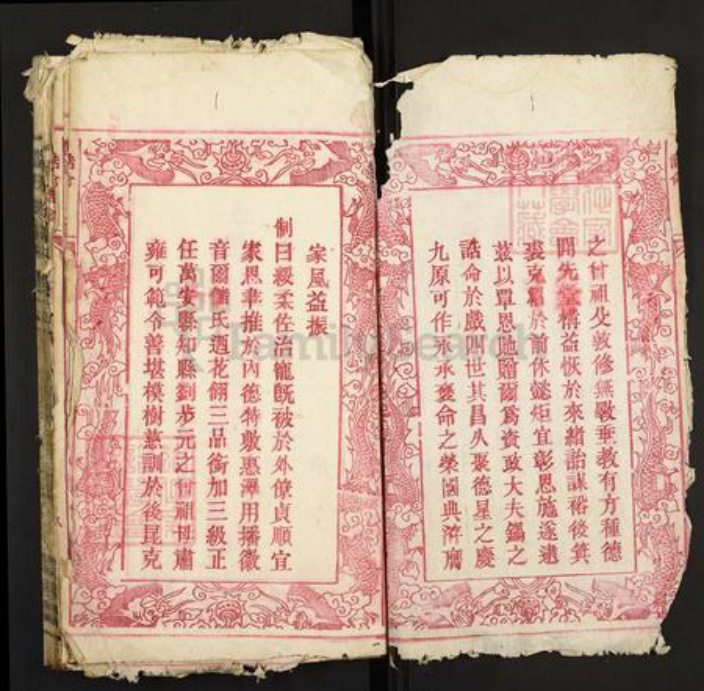 之曾祖父敦修無斁垂教有方種德
開先堂構益恢於來緒詒謀裕後箕
裘克紹於前休懿矩宜彰恩施遂逮
茲以覃恩貤贈爾為資政大夫錫之
誥命於戲四世其昌久聚德星之慶
九原可作永承褒命之榮國典洊膺
家風益振
制曰綏柔佐治寵既被於外僚貞順宜
家恩聿推於內德特敷惠澤用播徽
音爾 氏迺花翎三品銜加三級正
任萬安縣知縣劉步元之曾祖母肅
雍可範令善堪模樹慈訓於後昆克
FamilySearch